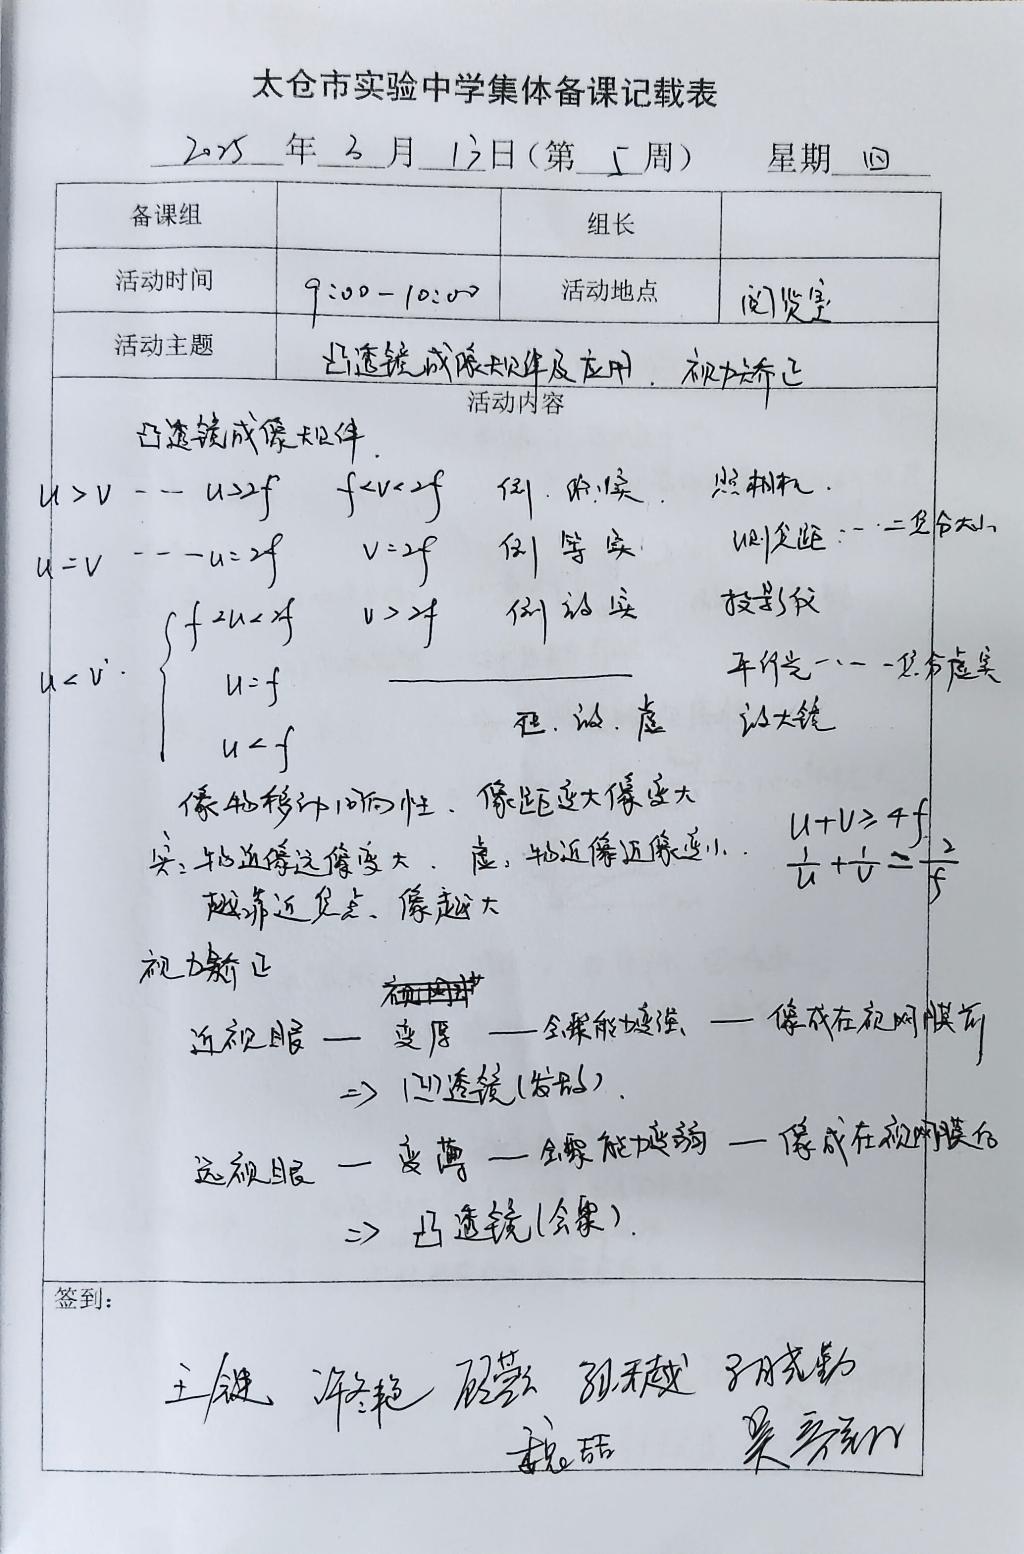 太仓市实验中学集体备课记载表
2025 年 3 月 13 日（第 5 周） 星期 四
备课组 组长
活动时间 9:00-10:00 活动地点 阅览室
活动主题 凸透镜成像规律及应用、视力矫正
活动内容
凸透镜成像规律.
u>v --- u>2f f<v<2f 倒. 缩. 实. 照相机.
u=v ---- u=2f v=2f 倒 等 实 测焦距 ---- 二焦分大小
f<u<2f v>2f 倒 放 实 投影仪
u<v. u=f 平行光 ---- 一焦分虚实
u<f 正. 放. 虚 放大镜
像物移动同向性、像距变大像变大
u+v≥4f
实: 物近像远像变大. 虚: 物近像近像变小. 1/u+1/v=2/f
越靠近焦点、像越大
视力矫正
近视眼 — 变厚 — 会聚能力变强 — 像成在视网膜前
=> 凹透镜(发散).
远视眼 — 变薄 — 会聚能力变弱 — 像成在视网膜后
=> 凸透镜(会聚).
签到:
王健 许冬艳